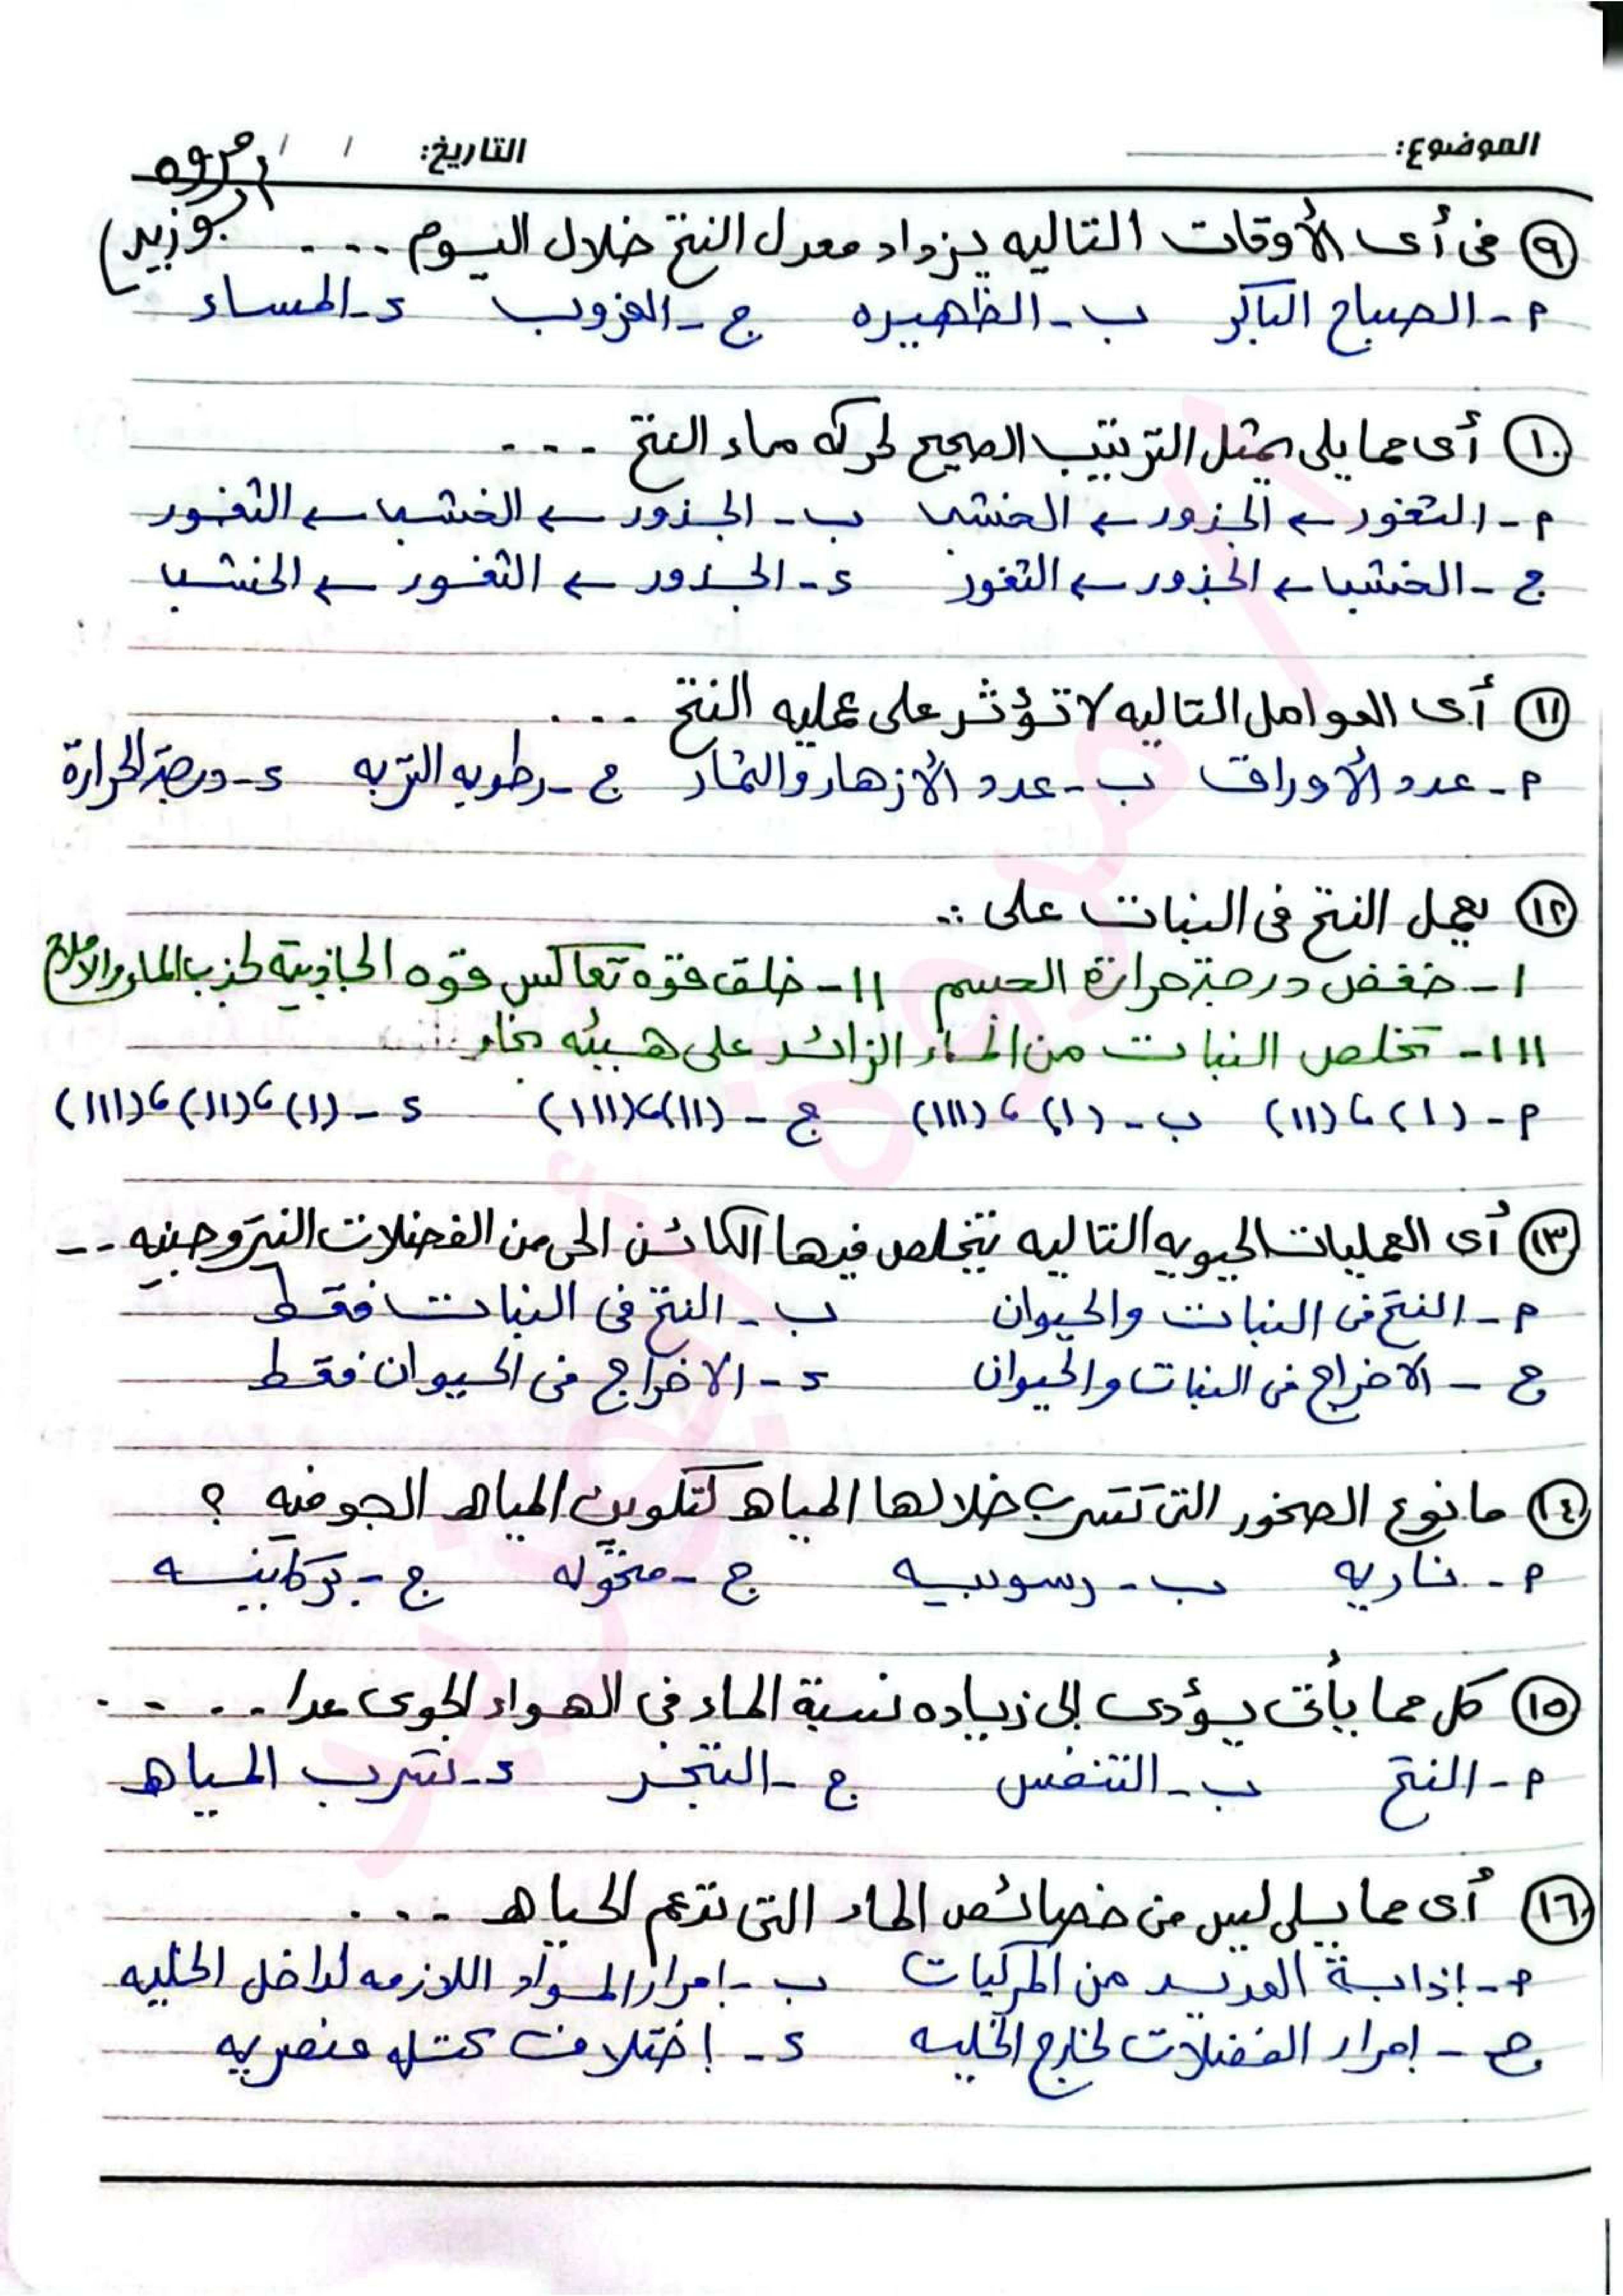 الموضوع: التاريخ: / /
أ.مروه أبوزيد
٩ فى أى الأوقات التاليه يزداد معدل النتح خلال اليوم ....
م - الصباح الباكر ب - الظهيره ج - الغروب د - المساء
١٠ أى مما يلى يمثل الترتيب الصحيح لحركه ماء النتح ...
م - الثغور ← الجذور ← الخشب ب - الجذور ← الخشب ← الثغور
ج - الخشب ← الجذور ← الثغور د - الجذور ← الثغور ← الخشب
١١ أى العوامل التاليه لا تؤثر على عمليه النتح ...
م - عدد الأوراق ب - عدد الأزهار والثمار ج - رطوبه التربه د - درجة الحرارة
١٢ يعمل النتح فى النبات على ..
I - خفض درجة حرارة الجسم II - خلق قوه تعاكس قوه الجاذبية لجذب الماء والاملاح
III - تخلص النبات من الماء الزائد على هيئه بخار
م - (I)، (II) ب - (I)، (III) ج - (II)، (III) د - (I)، (II)، (III)
١٣ أى العمليات الحيويه التاليه يتخلص فيها الكائن الحى من الفضلات النيتروجينيه --
م - النتح فى النبات والحيوان ب - النتح فى النبات فقط
ج - الاخراج فى النبات والحيوان د - الاخراج فى الحيوان فقط
١٤ ما نوع الصخور التى تتسرب خلالها المياه لتكوين المياه الجوفيه ؟
م - ناريه ب - رسوبيه ج - متحوله ج - بركانيه
١٥ كل مما يأتى يؤدى إلى زياده نسبة الماء فى الهواء الجوى عدا ....
م - النتح ب - التنفس ج - التبخر د - تسرب المياه
١٦ أى مما يلى ليس من خصائص الماء التى تدعم الحياه ...
م - إذابة العديد من المركبات ب - إمرار المواد اللازمه لداخل الخليه
ج - إمرار الفضلات لخارج الخليه د - إختلاف كتله عنصريه
أ/ مروة أبوزيد